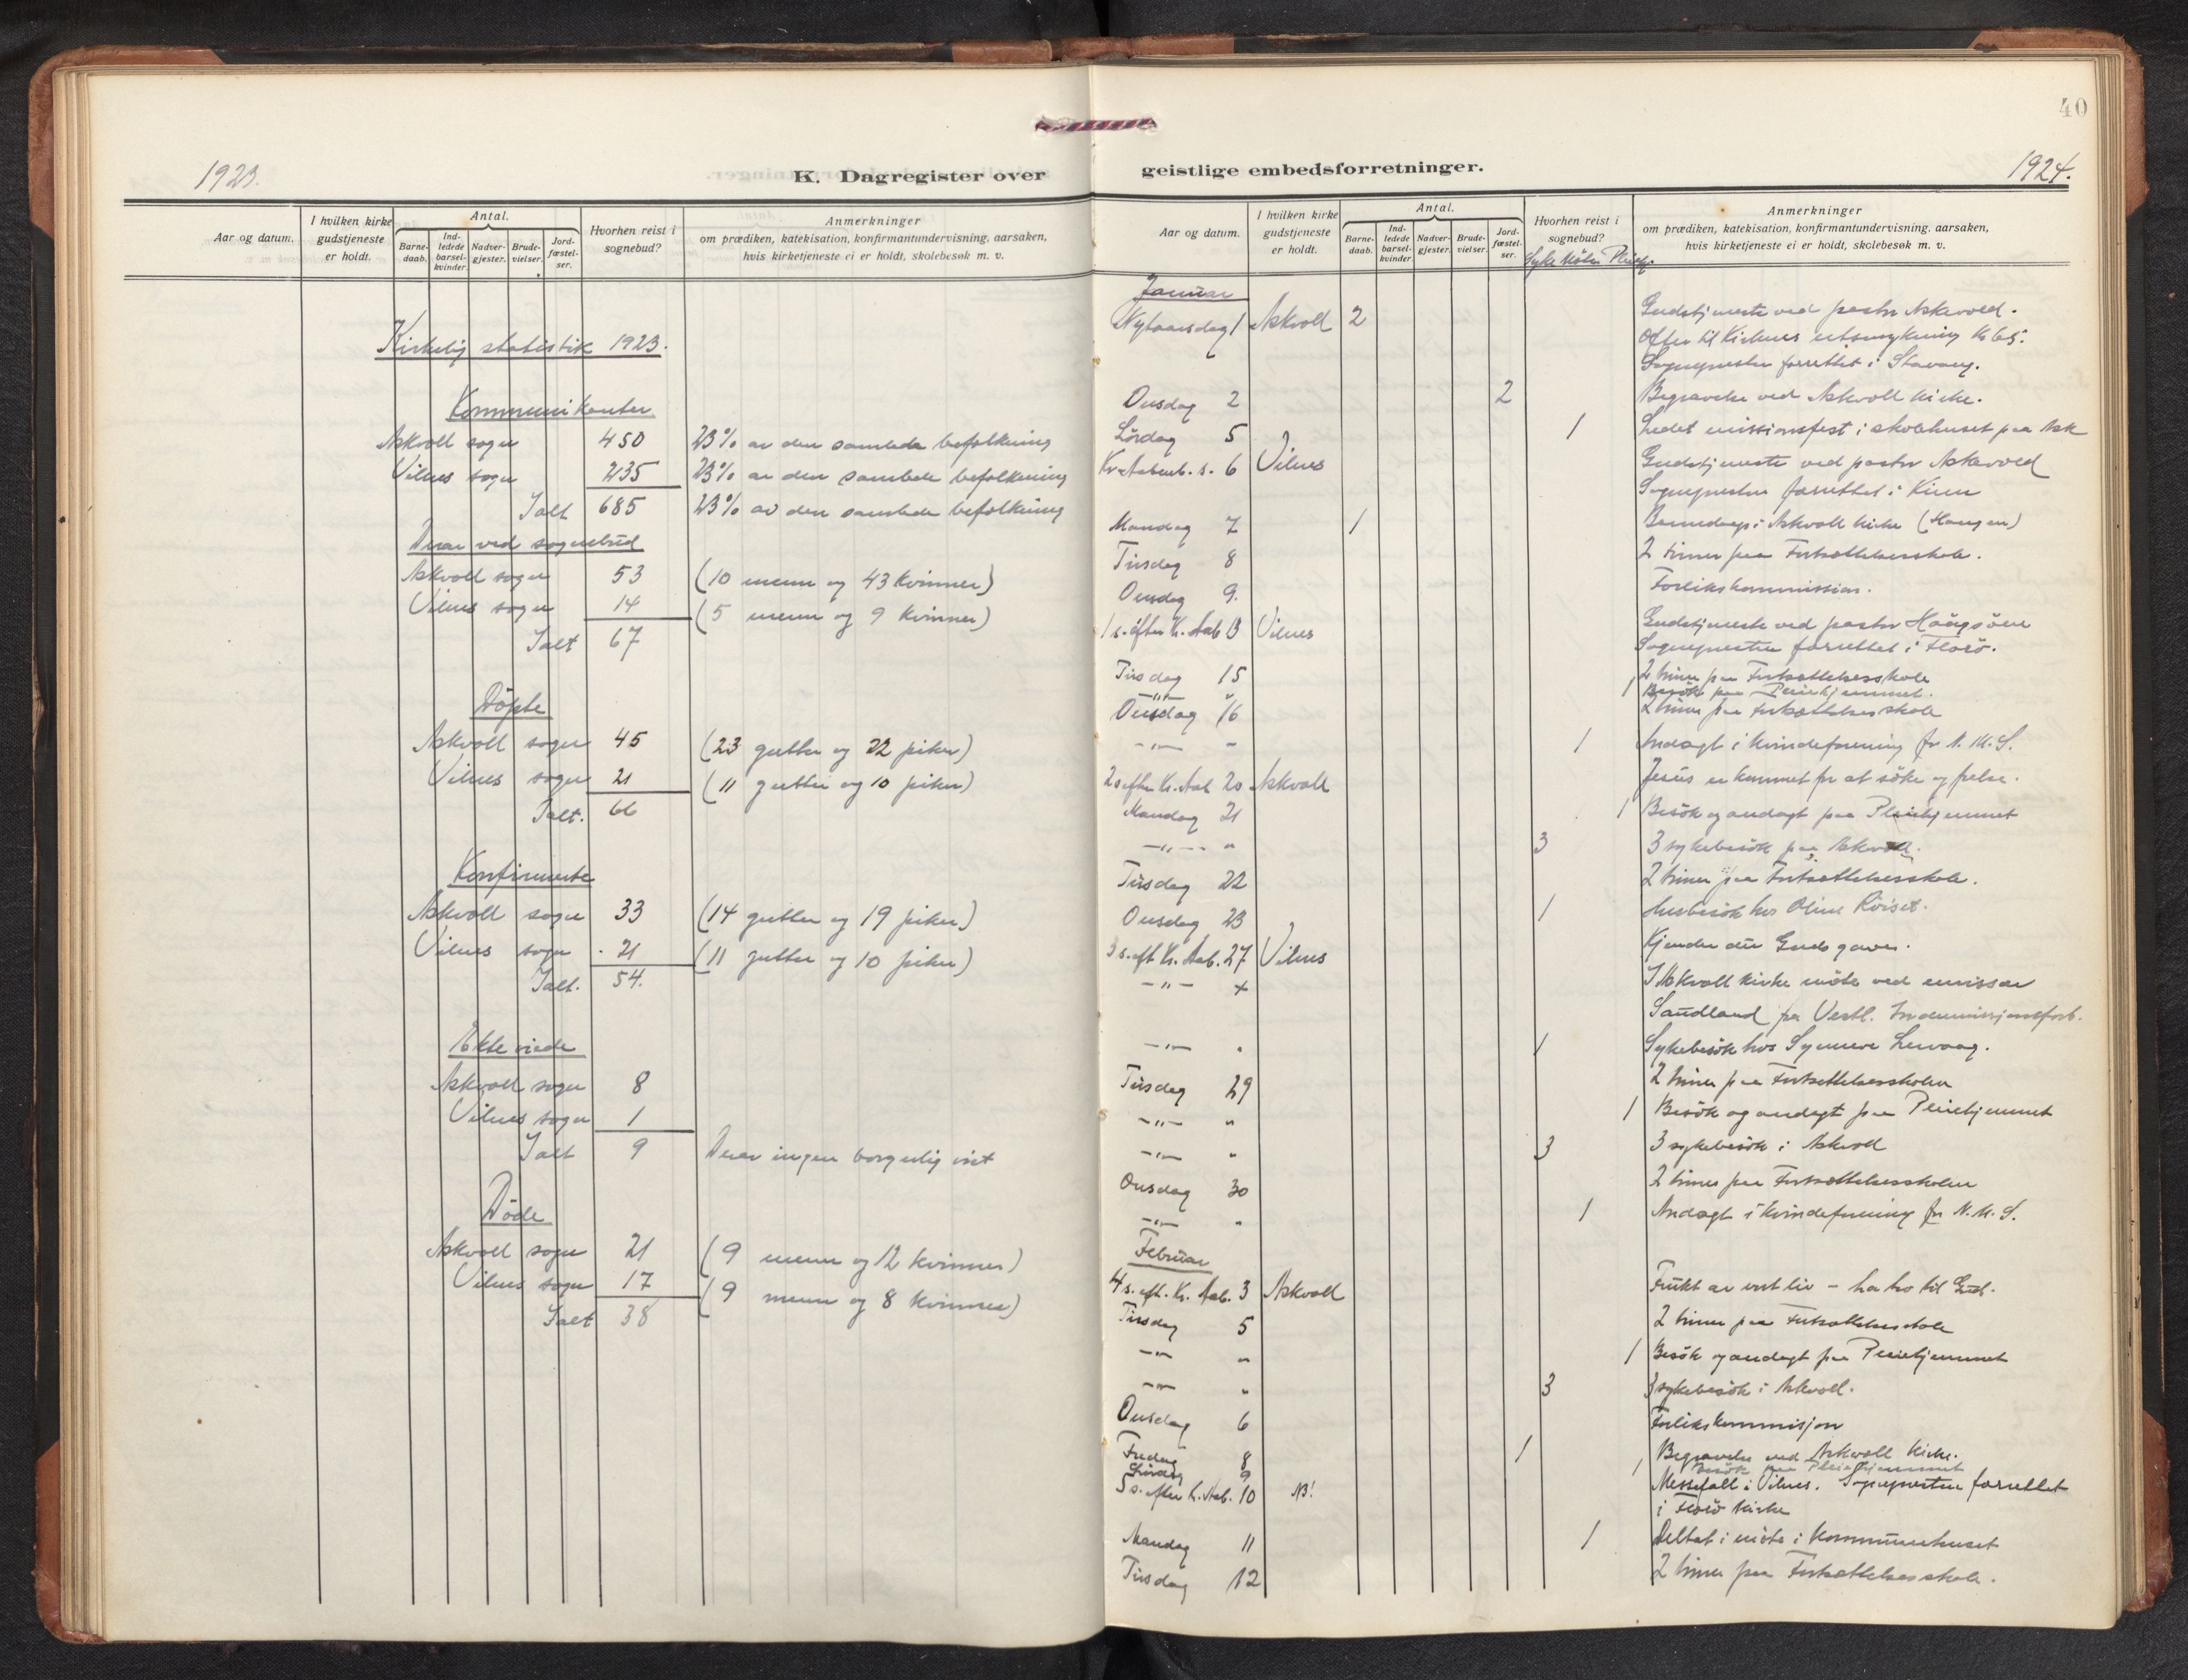 1923.
K. Dagregister over
Aar og datum.
I hvilken kirke gudstjeneste er holdt.
Antal.
Barne-daab.
Ind-ledede barsel-kvinder.
Nadver-gjester.
Brude-vielser.
Jord-fæstel-ser.
Hvorhen reist i sognebud?
Anmerkninger
om prædiken, katekisation, konfirmantundervisning, aarsaken,
hvis kirketjeneste ei er holdt, skolebesøk m. v.
Kirkelig statistik 1923.
Kommunikanter
Askvoll sogn 450 23% av den samlede befolkning
Vilnes sogn 235 23% av den samlede befolkning
Ialt 685 23% av den samlede befolkning
Derav ved sognebud
Askvoll sogn 53 (10 menn og 43 kvinner)
Vilnes sogn 14 (5 menn og 9 kvinner)
Ialt 67
Döpte
Askvoll sogn 45 (23 gutter og 22 piker)
Vilnes sogn 21 (11 gutter og 10 piker)
Ialt. 66
Konfirmerte
Askvoll sogn 33 (14 gutter og 19 piker)
Vilnes sogn 21 (11 gutter og 10 piker)
Ialt. 54.
Ekteviede
Askvoll sogn 8
Vilnes sogn 1
Ialt 9 Derav ingen borgerlig viet
Döde
Askvoll sogn 21 (9 menn og 12 kvinner)
Vilnes sogn 17 (9 menn og 8 kvinner)
Ialt 38
40
geistlige embedsforretninger.
1924.
Aar og datum.
I hvilken kirke gudstjeneste er holdt.
Antal.
Barne-daab.
Ind-ledede barsel-kvinder.
Nadver-gjester.
Brude-vielser.
Jord-fæstel-ser.
Hvorhen reist i sognebud?
Syke Möter Pleiehj.
Anmerkninger
om prædiken, katekisation, konfirmantundervisning, aarsaken,
hvis kirketjeneste ei er holdt, skolebesøk m. v.
Januar
Nytaarsdag 1 Askvoll 2 Gudstjeneste ved pastor Askevold.
Offer til Kirkens utsmykning kr 65.
Sognepresten forrettet i Stavang.
Onsdag 2 2 Begravelse ved Askvoll kirke.
Lördag 5 1 Ledet missionsfest i skolehuset paa Ask
Kr. Aabenb. s. 6 Vilnes Gudstjeneste ved pastor Askevold
Sognepresten forrettet i Kinn
Mandag 7 1 Barnedaap i Askvoll kirke (Haugen)
Tirsdag 8 2 timer paa Fortsættelsesskole.
Onsdag 9. Forlikskommission.
1 s. efter K. Aab 13 Vilnes Gudstjeneste ved pastor Haugsöen
Sognepresten forrettet i Florö.
Tirsdag 15 2 timer paa Fortsættelsesskole
-"- " 1 Besök paa Pleiehjemmet.
Onsdag 16 2 timer paa Fortsættelsesskole
-"- - 1 Andagt i kvindeforening for N.M.S.
2 s. efter K. Aab 20 Askvoll Jesus er kommet for at söke og frelse.
Mandag 21 1 Besök og andagt paa Pleiehjemmet
-"- " 3 3 sykebesök paa Askvoll.
Tirsdag 22 2 timer paa Fortsættelsesskole.
Onsdag 23 1 Husbesök hos Oline Röiset.
3 s. eft K. Aab. 27 Vilnes Kjender du Guds gaver.
-"- + I Askvoll kirke möte ved emissær
Sandland fra Vestl. Indremisjonsforb.
-"- " 1 Sykebesök hos Synneve Lervaag.
Tirsdag 29 2 timer paa Fortsettelsesskolen
-"- " 1 Besök og andagt paa Pleiehjemmet
-"- " 3 3 sykebesök i Askvoll
Onsdag 30 2 timer paa Fortsættelsesskolen
-"- " 1 Andagt i kvindeforening for N.M.S.
Februar
4 s. eft. K. Aab. 3 Askvoll Frukt av vort liv – ha tro til Gud.
Tirsdag 5 2 timer paa Fortsættelsesskole
-"- " 1 Besök og andagt paa Pleiehjemmet
-"- " 3 3 sykebesök i Askvoll.
Onsdag 6 Forlikskommisjon
Fredag 8 1 Begravelse ved Askvoll kirke.
Lördag 9 1 Besök paa Pleiehjemmet
5 s. efter K. Aab. 10 NB! Messefall i Vilnes. Sognepresten forrettet
i Florö kirke
Mandag 11 1 Deltat i möte i Kommunehuset
Tirsdag 12 2 timer paa Fortsættelsesskole.